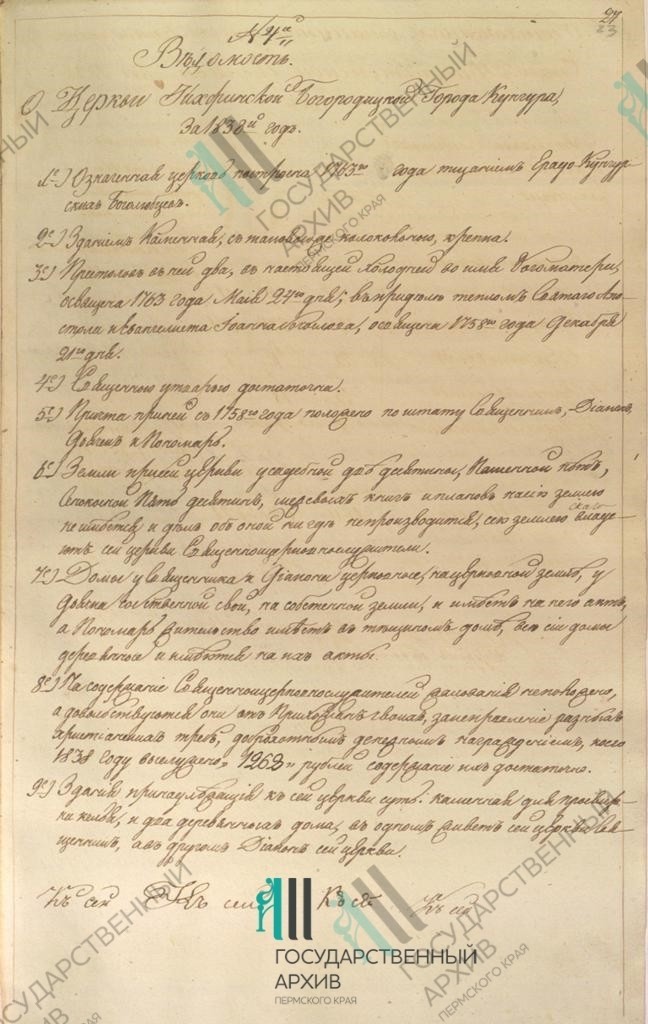 27
23
N 4й
Вѣдомость.
О Церкви Тихвинской Богородицкой Города Кунгура,
За 1838й годъ.
1е) Означенная церковь построена 1763го года тщаніемъ Градо-Кунгур-
скихъ Боголюбцевъ.
2е) Зданіемъ Каменная, съ таковою же колокольнею, крепка.
3е) Престоловъ въ ней два, въ настоящей холодней во имя Богоматери,
освящена 1763 года Маія 24го дня; въ придѣле тепломъ Святаго Апо-
стола и Евангелиста Іоанна Богослова, освященъ 1758го года Декабря
21го дня.
4е) Священною утварью достаточна.
5е) Причта при ней съ 1758го года положено по штату Священникъ, Діаконъ,
Дьячекъ и Пономарь.
6е) Земли при сей церкви усадебной двѣ десятины, Пашенной нѣтъ,
Сенокосной Пять десятинъ, межевыхъ книгъ и плановъ на сію землю
не имѣется и дѣлъ объ оной ни гдѣ не производится, сею землею владе-
ютъ сей церкви Священноцерковнослужители.
7е) Домы у Священника и Діакона церковные, на церковной землѣ, у
Дьячка собственной свой, на собственной земли, и имѣетъ на него актъ,
а Пономарь жительство имѣетъ въ домѣ, все сіи домы
деревянные и имѣются на нихъ акты.
8е) На содержаніе Священноцерковнослужителей жалованія не положено,
а довольствуются они отъ Прихожанъ своихъ, за исправленіе разныхъ
христіанскихъ требъ, доброхотнымъ денежнымъ награжденіемъ, коего
1838 году выслужено "1262" рублей содержаніе ихъ достаточно.
9е) Зданія принадлежащія къ сей церкви суть: каменная для просвир-
ки келья, и два деревянныхъ дома, въ одномъ живетъ сей церкви Свя-
щенникъ, а въ другомъ Діаконъ сей церкви.
Къ сей Къ сей Къ сей Къ сей
ГОСУДАРСТВЕННЫЙ
АРХИВ
ПЕРМСКОГО КРАЯ